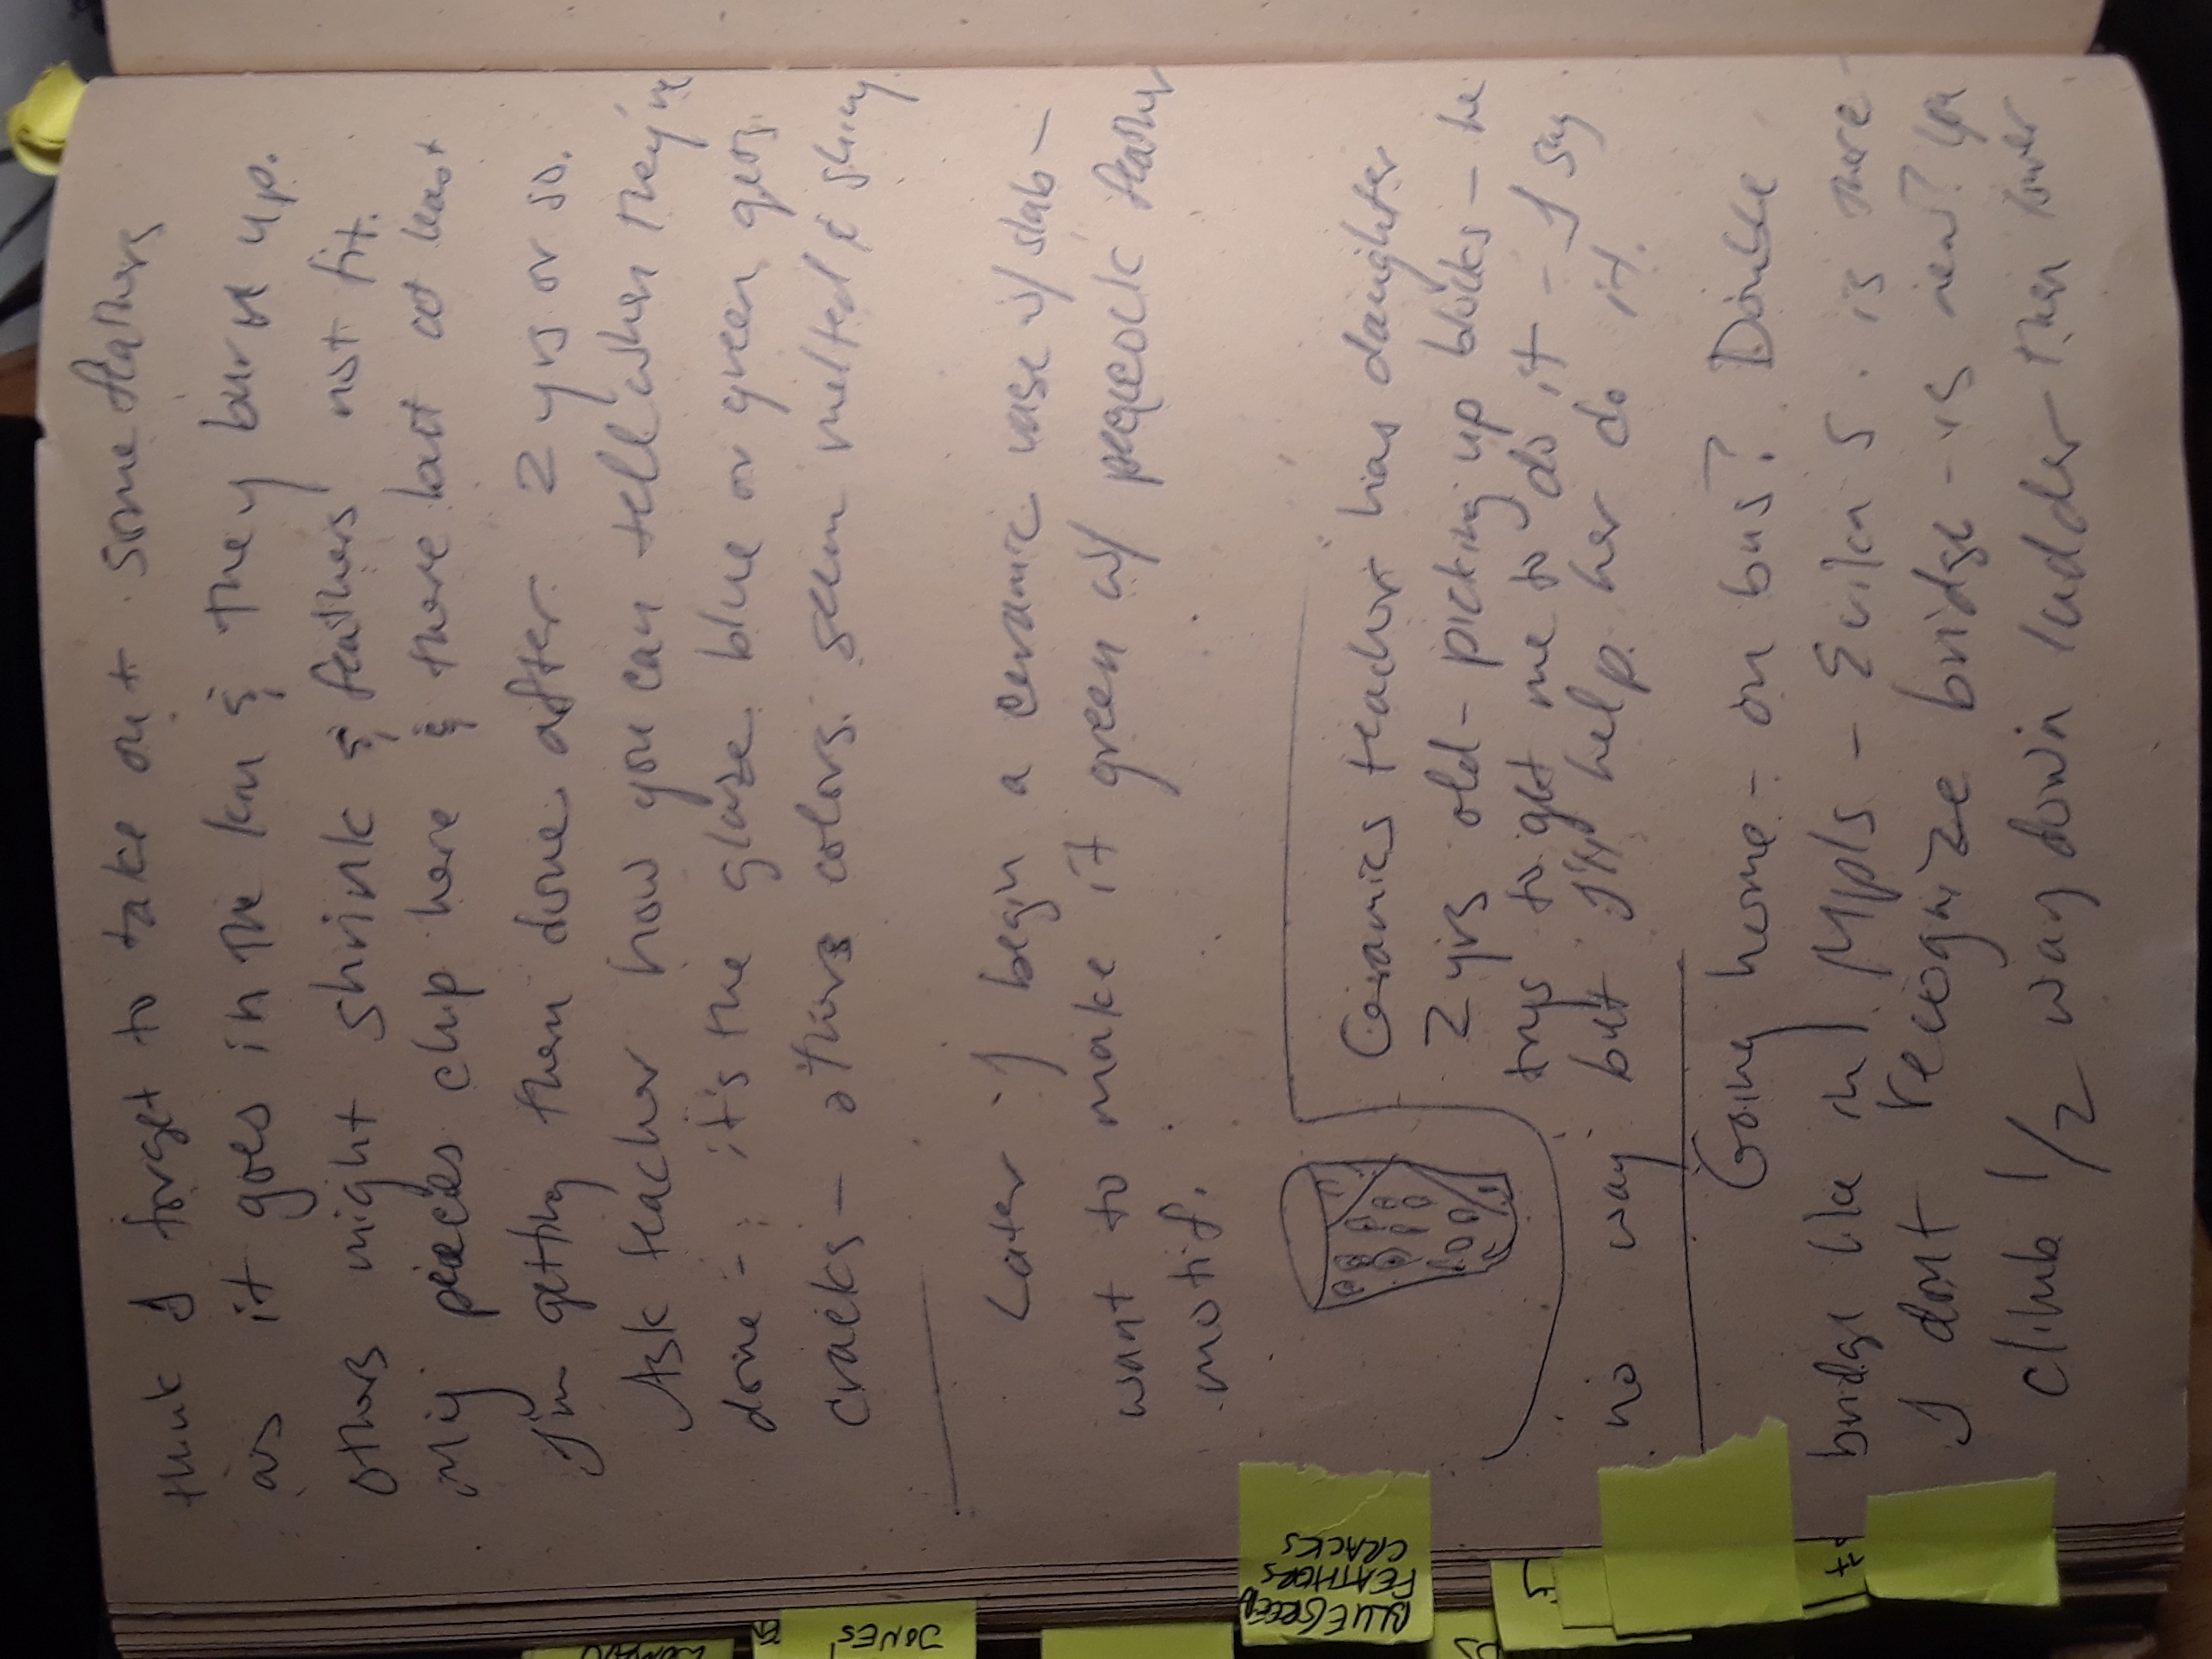 think I forget to take out some feathers
as it goes in the kiln & they burn up.
Others might shrink & feathers not fit.
My pieces chip here & there but at least
I'm getting them done after 2 yrs or so.
Ask teacher how you can tell when they're
done - it's the glaze blue or green gets
cracks - others colors seem melted & shiny
Later I begin a ceramic vase w/ slab -
want to make it green w/ peacock feather
motif.
Ceramics teacher has daughter
2 yrs old - picking up blocks - he
trys to get me to do it - I say
no way but I'll help her do it.
Going home - on bus? Double
bridge like in Mpls - Evilen S. is there -
I dont recognize bridge - is new? You
climb 1/2 way down ladder then lower
BLUE GREEN
FEATHERS
CRACKS
JONES'